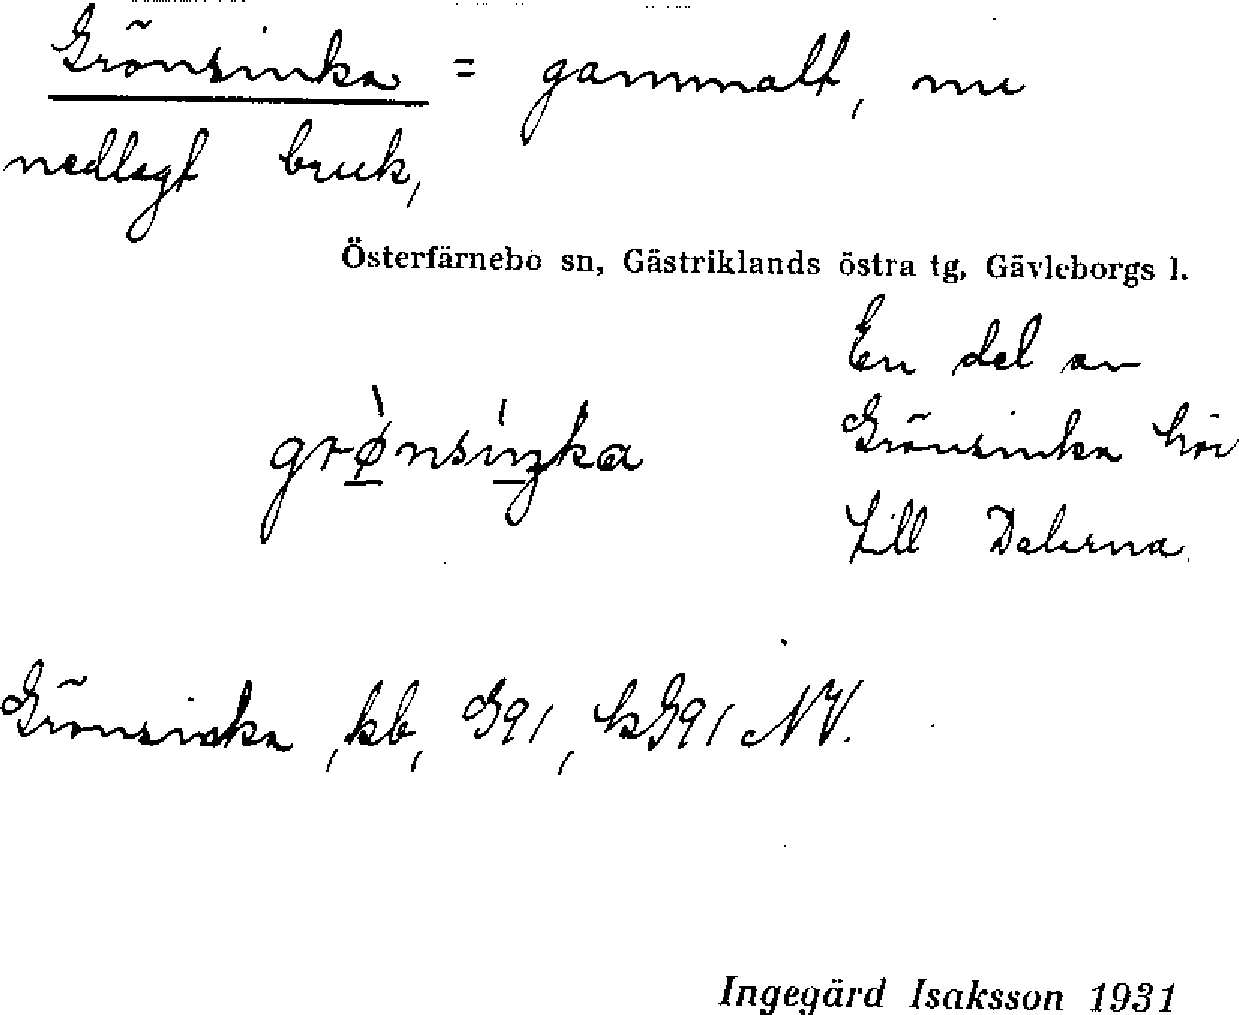 Grönsinka = gammalt, nu
nedlagt bruk,
Österfärnebo sn, Gästriklands östra tg, Gävleborgs l.
En del av
Grönsinka hör
till Dalarna.
grø̀nsíŋka
Grönsinka, kb, G91, kG91 NV.
Ingegärd Isaksson 1931